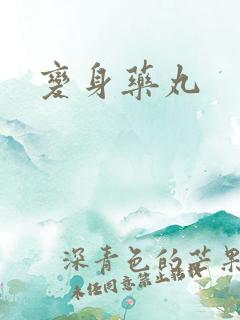 變身藥丸
深青色的芒果
未经同意禁止转载